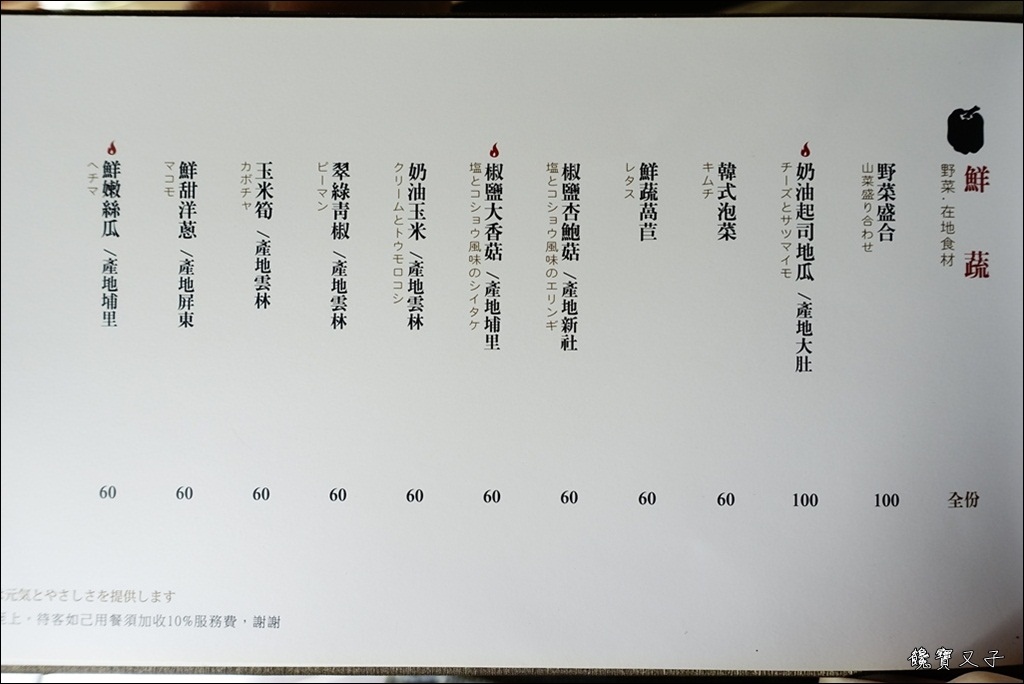 鮮 蔬
野菜‧在地食材
全份
野菜盛合
山菜盛り合わせ
100
奶油起司地瓜 /產地大肚
チーズとサツマイモ
100
韓式泡菜
キムチ
60
鮮蔬萵苣
レタス
60
椒鹽杏鮑菇 /產地新社
塩とコショウ風味のエリンギ
60
椒鹽大香菇 /產地埔里
塩とコショウ風味のシイタケ
60
奶油玉米 /產地雲林
クリームとトウモロコシ
60
翠綠青椒 /產地雲林
ピーマン
60
玉米筍 /產地雲林
カボチャ
60
鮮甜洋蔥 /產地屏東
マコモ
60
鮮嫩絲瓜 /產地埔里
ヘチマ
60
元気とやさしさを提供します
至上，待客如己用餐須加收10%服務費，謝謝
饞寶又子